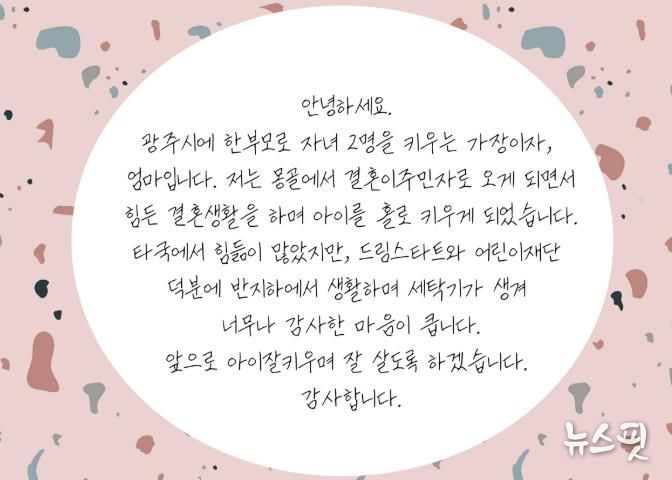 안녕하세요.
광주시에 한부모로 자녀 2명을 키우는 가장이자,
엄마입니다. 저는 몽골에서 결혼이주민자로 오게 되면서
힘든 결혼생활을 하며 아이를 홀로 키우게 되었습니다.
타국에서 힘듦이 많았지만, 드림스타트와 어린이재단
덕분에 반지하에서 생활하며 세탁기가 생겨
너무나 감사한 마음이 큽니다.
앞으로 아이잘키우며 잘 살도록 하겠습니다.
감사합니다.
뉴스핏